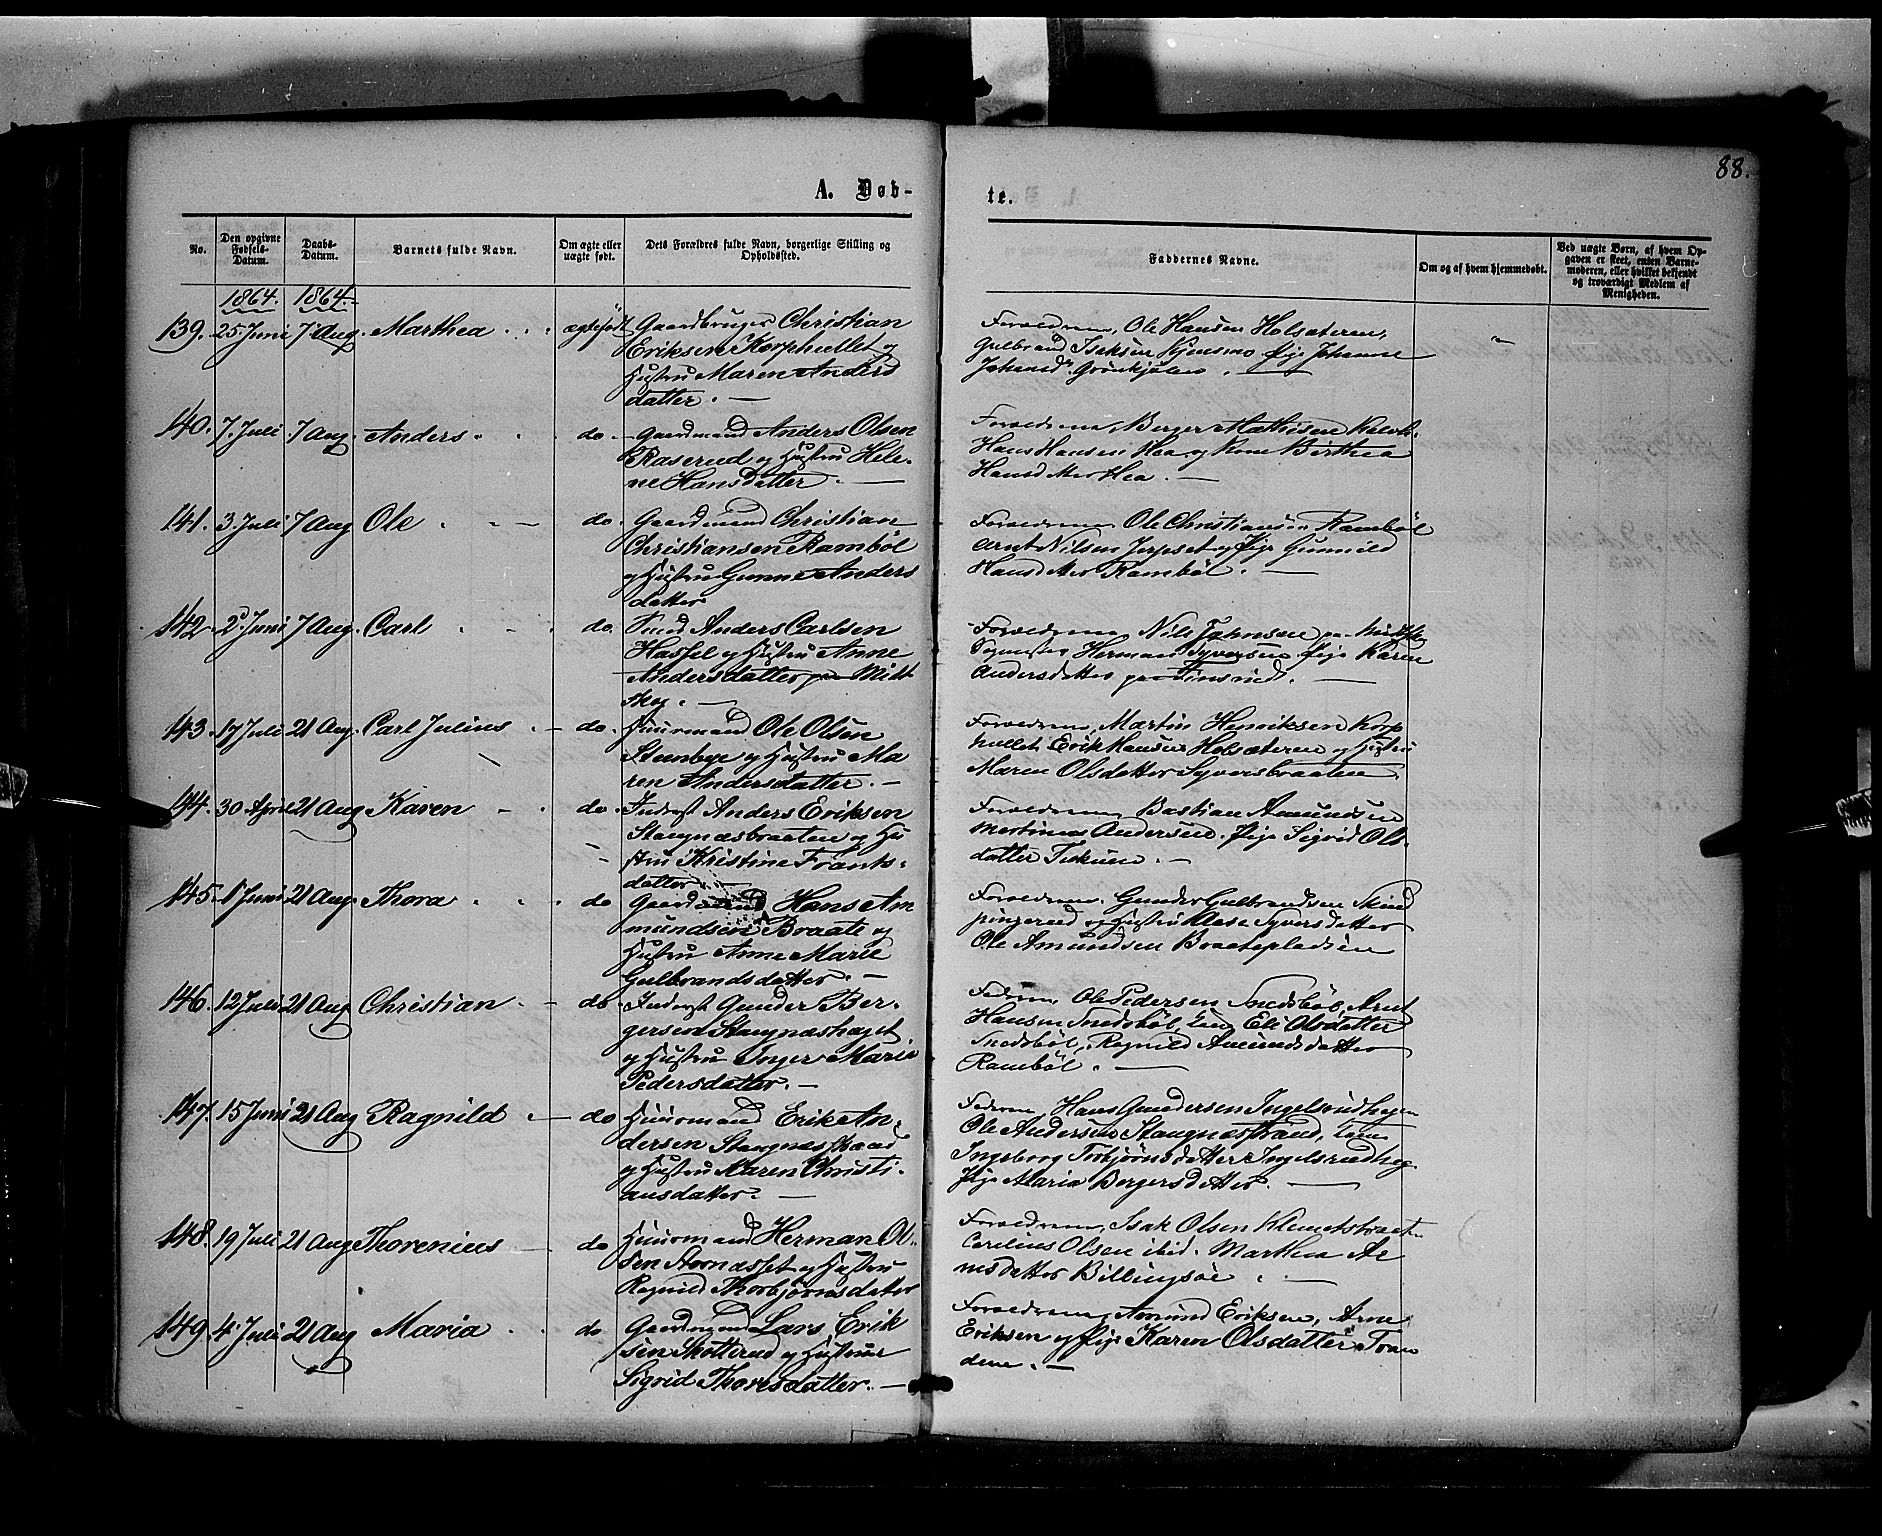 88.
A. Døb-
te.
No.
Den opgivne Fødsels-Datum.
Daabs-Datum.
Barnets fulde Navn.
Om ægte eller uægte født.
Dets Forældres fulde Navn, borgerlige Stilling og Opholdssted.
Faddernes Navne.
Om og af hvem hjemmedøbt.
Ved uægte Børn, af hvem Op-
gaven er skeet, enten Barne-
moderen, eller hvilket bekjendt
og troværdigt Medlem af
Menigheden.
1864. 1864.
139. 25 Juni 7 Aug. Marthea ægtefødt Gaardbruger Christian
Eriksen Korphullet og
Hustru Maren Anders
datter.
Forældrene, Ole Hansen Holsæteren,
Gulbrand Isaksen Pige Johanne
140. 7. Juli 7 Aug. Anders do. Gaardmand Anders Olsen
Raserud og Hustru Hele-
ne Hansdatter.
Forældrene, Berger Mathisen
Hans Hansen Hea og Kone Birthea
Hansdatter Hea.
141. 3. Juli 7 Aug Ole do. Gaardmand Christian
Christiansen Rambøl
og Hustru Gunne Anders
datter
Forældrene Ole Christiansen Rambøl
Arnt Nilsen Jerpset og Pige Gunnild
Hansdatter Rambøl.
142. 2 Juni 7 Aug. Carl do. Anders Carlsen
Hassel og Hustru Anne
Andersdatter paa Midt
skog.
Forældrene Nils Johnsen paa
Herman Syversen Pige Karen
Andersdatter paa Finsrud.
143. 17 Juli 21 Aug. Carl Julius do. Huusmand Ole Olsen
Steenbye og Hustru Ma
ren Andersdatter.
Forældrene, Martin Henriksen Korp
hullet, Erik Hansen Holsæteren og Hustru
Maren Olsdatter Syversbraaten
144. 30 April 21 Aug Karen do. Inderst Anders Eriksen
Stangnæsbraaten og Hu
stru Kristine Frants-
datter.
Forældrene Bastian Amundsen
Martinus Andersen, Pige Sigrid Ols-
datter
145. 1 Juni 21 Aug. Thora do Gaardmand Hans Am
mundsen Braate og
Hustru Anne Marie
Gulbrandsdatter.
Forældrene. Gunder Gulbrandsen Skind
pungerud og Hustru Syversdatter
Ole Amundsen Braatepladsen
146. 12 Juli 21 Aug Christian do. Inderst Gunder Ber-
gersen Stangnæshaget
og Hustru Inger Maria
Pedersdatter.
Fadren, Ole Pedersen Snedsbøl, Arnt
Hansen Snedsbøl, Eli Olsdatter
Snedsbøl, Ragnild Amundsdatter
Rambøl.
147. 15 Juni 21 Aug Ragnild do Huusmand Erik An-
dersen Stangnæsstrand
og Hustru Karen Christi-
ansdatter.
Fadren, Hans Gundersen Ingelsrudhagen
Ole Andersen Stangnæsstrand,
Ingeborg Torbjørnsdatter Ingelsrudhag.
Pige Maria Bergersdatter.
148. 19 Juli 21 Aug Thorenius do Huusmand Herman Ol-
sen Aornæsset og Hustru
Ragnild Thorbjørnsdatter
Forældrene, Isak Olsen
Carelius Olsen ibid. Marthea Ar
nesdatter Billingsøe.
149. 4. Juli 21 Aug Maria do Gaardmand Lars Erik
sen Skotterud og Hustrue
Sigrid Thoresdatter.
Forældrene, Amund Eriksen, Arne
Eriksen og Pige Karen Olsdatter Tran
dene.